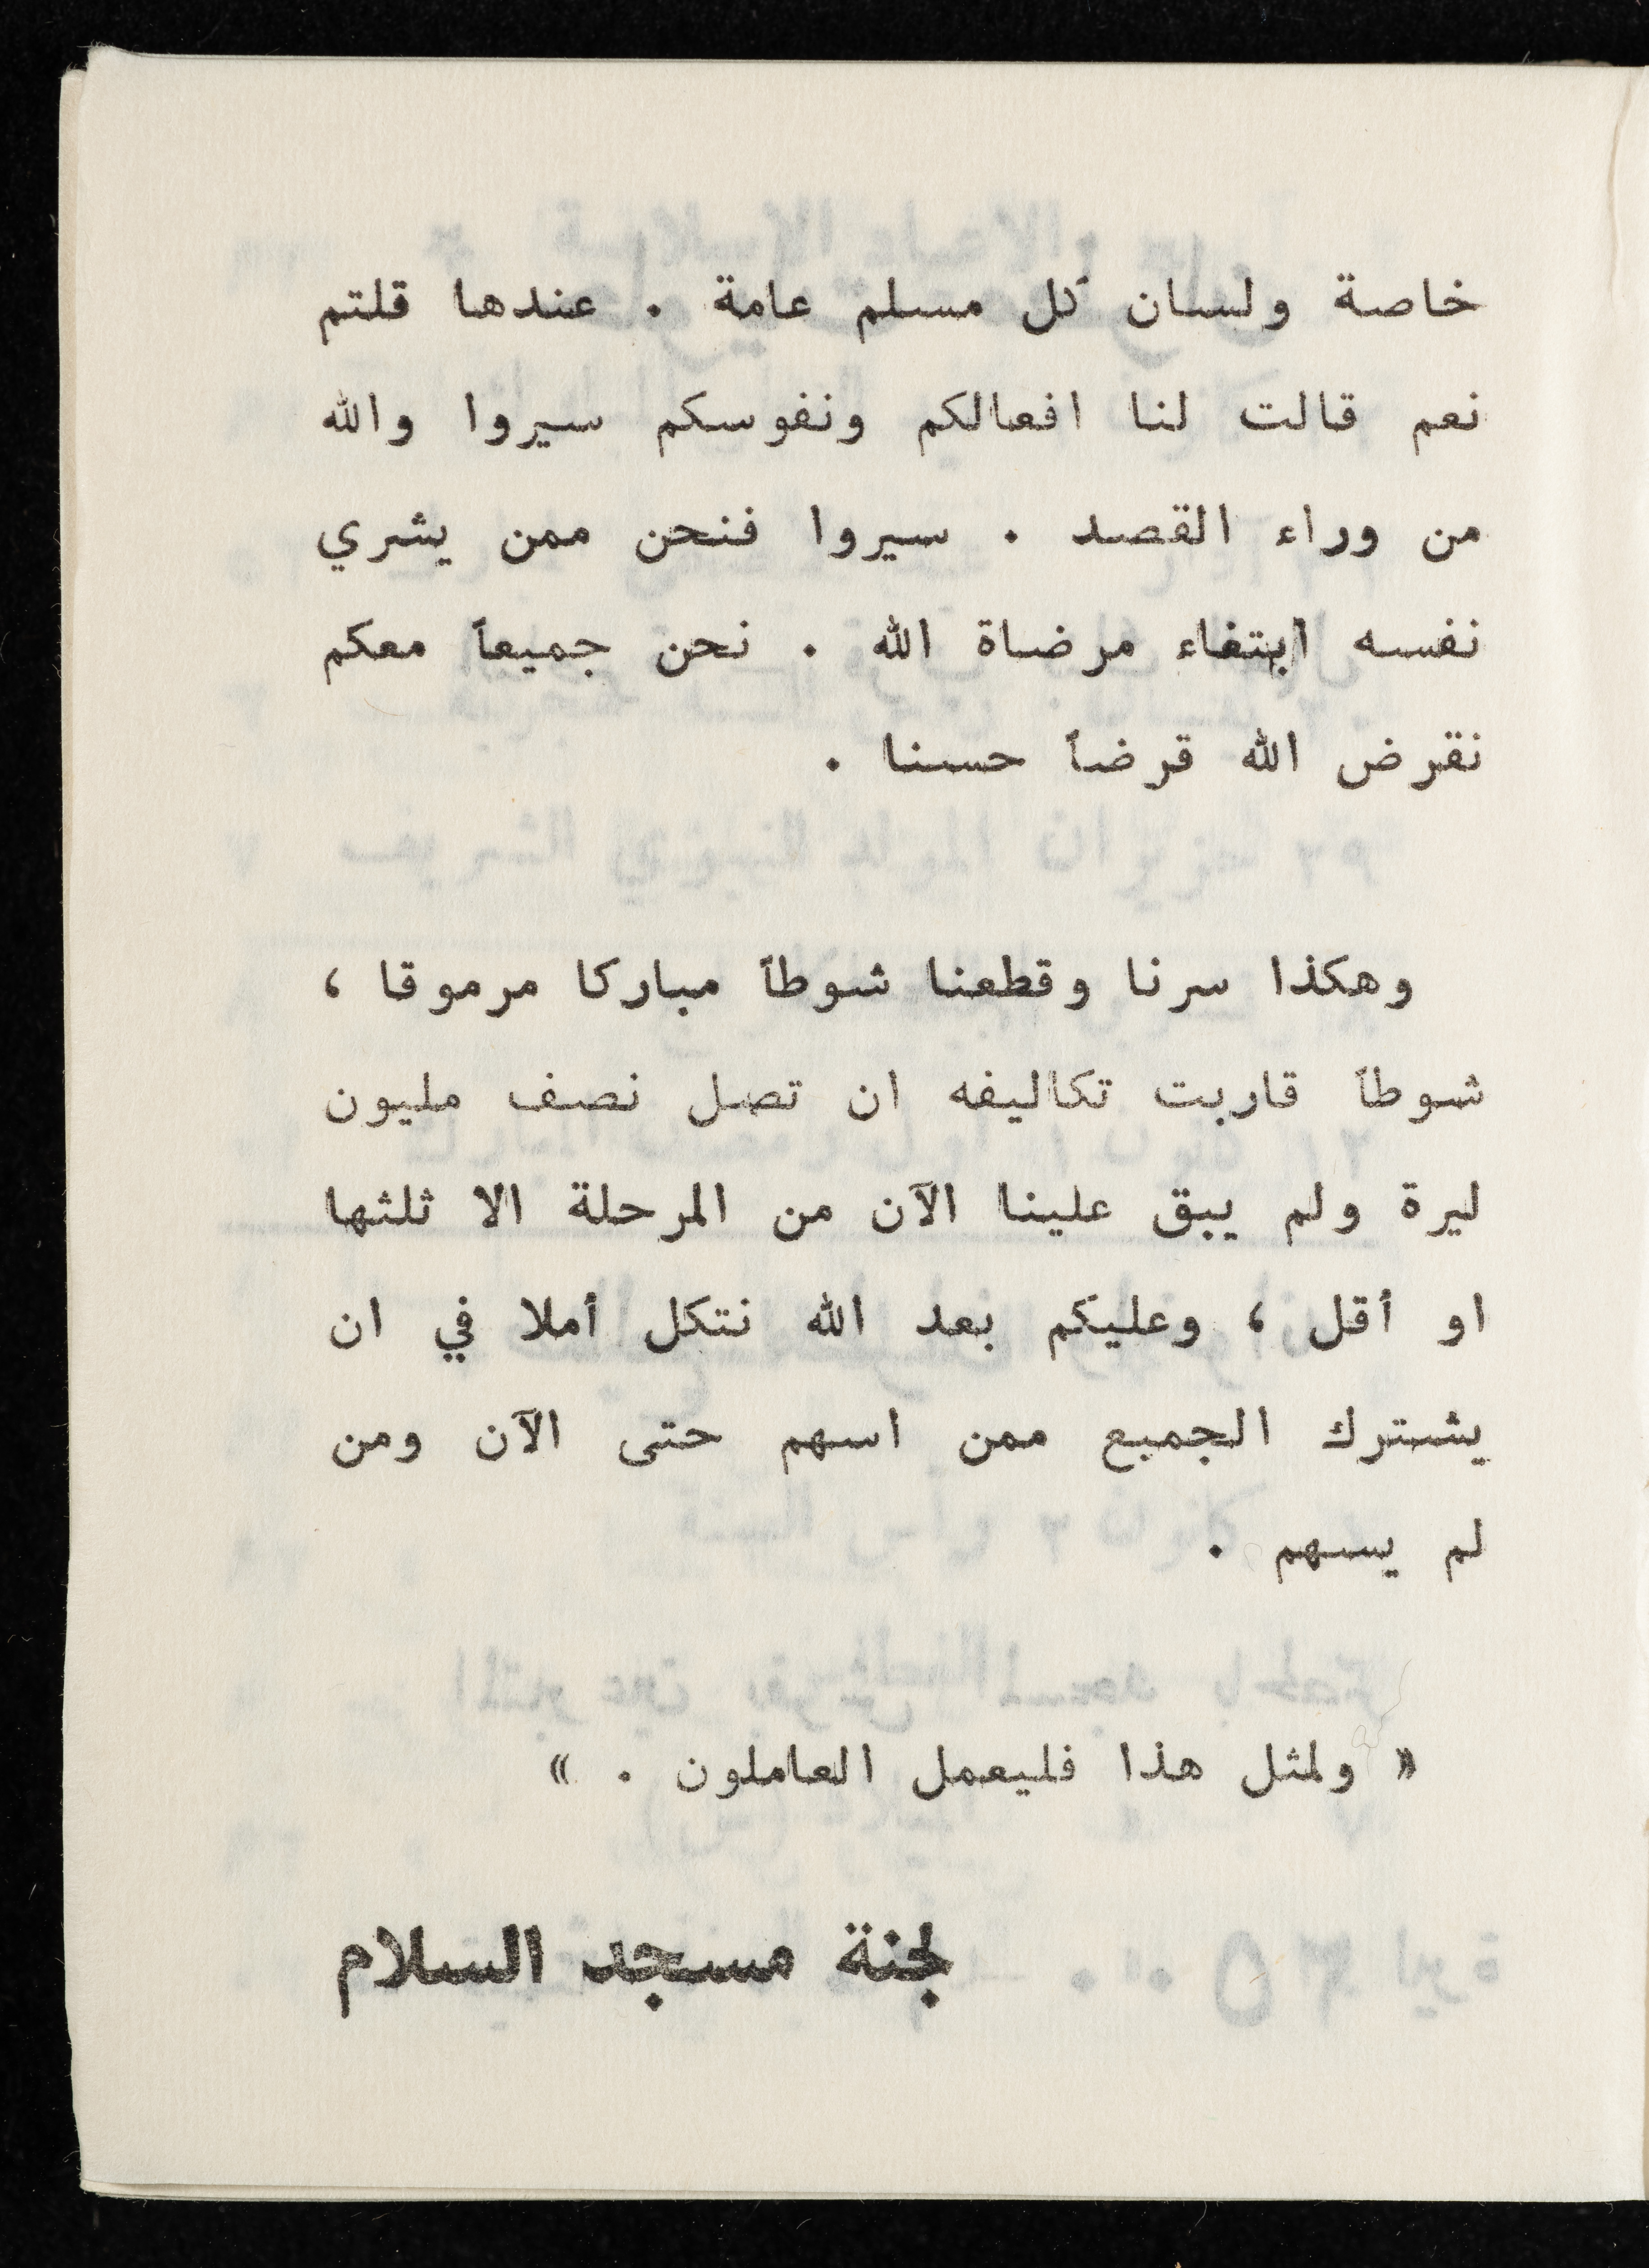 خاصة ولسان كل مسلم عامة . عندها قلتم
نعم قالت لنا افعالكم ونفوسكم سيروا والله
من وراء القصد . سيروا فنحن ممن يشري
نفسه ابتغاء مرضاة الله . نحن جميعاً معكم
نقرض الله قرضاً حسنا .
وهكذا سرنا وقطعنا شوطاً مباركا مرموقا ،
شوطاً قاربت تكاليفه ان تصل نصف مليون
ليرة ولم يبق علينا الآن من المرحلة الا ثلثها
او أقل ، وعليكم بعد الله نتكل أملا في ان
يشترك الجميع ممن اسهم حتى الآن ومن
لم يسهم .
« ولمثل هذا فليعمل العاملون . »
لجنة مسجد السلام